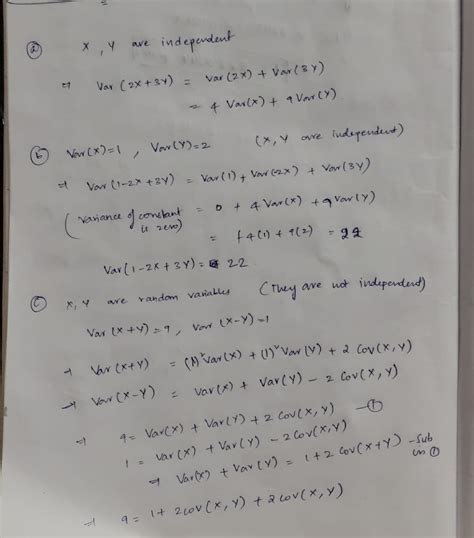 (a) X, Y are independent
⇒ Var (2X+3Y) = Var(2X) + Var(3Y)
= 4 Var(X) + 9 Var(Y)
(b) Var(X)=1 , Var(Y)=2 (X, Y are independent)
⇒ Var(1-2X+3Y) = Var(1) + Var(-2X) + Var(3Y)
(Variance of constant is zero) = 0 + 4 Var(X) + 9 Var(Y)
= 4(1) + 9(2) = 22
Var(1-2X+3Y) = 22
(c) X, Y are random variables (They are not independent)
Var(X+Y)=9, Var(X-Y)=1
→ Var(X+Y) = (1)²Var(X) + (1)²Var(Y) + 2 Cov(X,Y)
→ Var(X-Y) = Var(X) + Var(Y) - 2 Cov(X,Y)
⇒ 9 = Var(X) + Var(Y) + 2 Cov(X,Y) —①
1 = Var(X) + Var(Y) - 2 Cov(X,Y)
⇒ Var(X) + Var(Y) = 1+2 Cov(X+Y) -Sub in ①
⇒ 9 = 1 + 2cov(X,Y) + 2cov(X,Y)